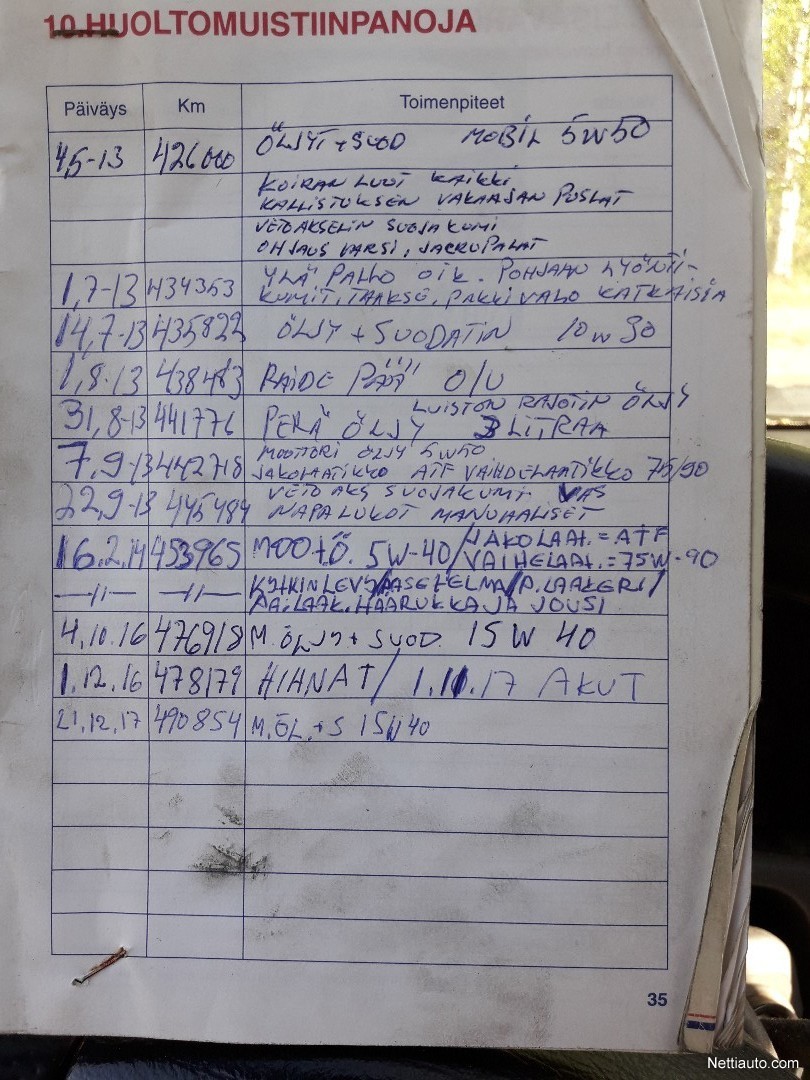 10.HUOLTOMUISTIINPANOJA
Päiväys Km Toimenpiteet
4,5-13 426000 ÖLJYT + SUOD MOBIL 5W50
KOIRAN LUUT KAIKKI
KALLISTUKSEN VAKAAJAN PUSLAT
VETOAKSELIN SUOJAKUMI
OHJAUS VARSI, JARRUPALAT
1,7-13 434353 YLÄ PALLO OIK. POHJAAN LYÖNTI-
KUMIT, TAAKSE, PAKKIVALO KATKAISIA
14,7-13 435822 ÖLJY + SUODATIN 10W30
1,8-13 438483 RAIDE PÄÄ O/U
31,8-13 441776 PERÄ ÖLJY LUISTON RAJOTIN ÖLJY
3 LITRAA
7,9-13 442718 MOOTTORI ÖLJY 5W50
JAKOLAATIKKO ATF VAIHDELAATIKKO 75/90
22,9-13 445484 VETO AKS SUOJAKUMI VAS
NAPALUKOT MANUAALISET
16.2.14 453965 MOOT.Ö. 5W-40/JAKOLAAT.=ATF
VAIHELAAT.=75W-90
—//— —//— KYTKINLEVY/ASETELMA/P.LAAKERI/
PÄ.LAAK.HAARUKKA JA JOUSI
4.10.16 476918 M.ÖLJY + SUOD. 15W40
1.12.16 478179 HIHNAT/ 1.11.17 AKUT
21.12.17 490854 M.ÖL.+S 15W40
35
Nettiauto.com